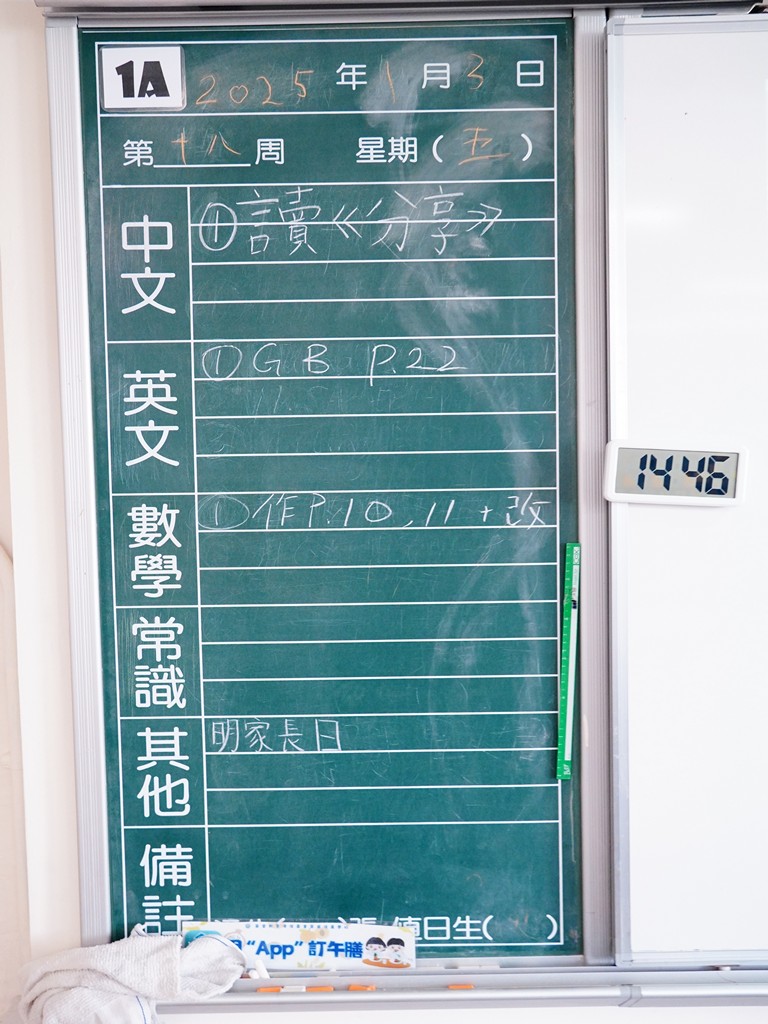 1A 2025 年 1 月 3 日
第 十八 周 星期 ( 五 )
中文
① 讀《分享》
英文
① GB P.22
數學
① 作 P.10, 11 + 改
常識
其他
明家長日
備註
值日生( )
"App" 訂午膳
14 46